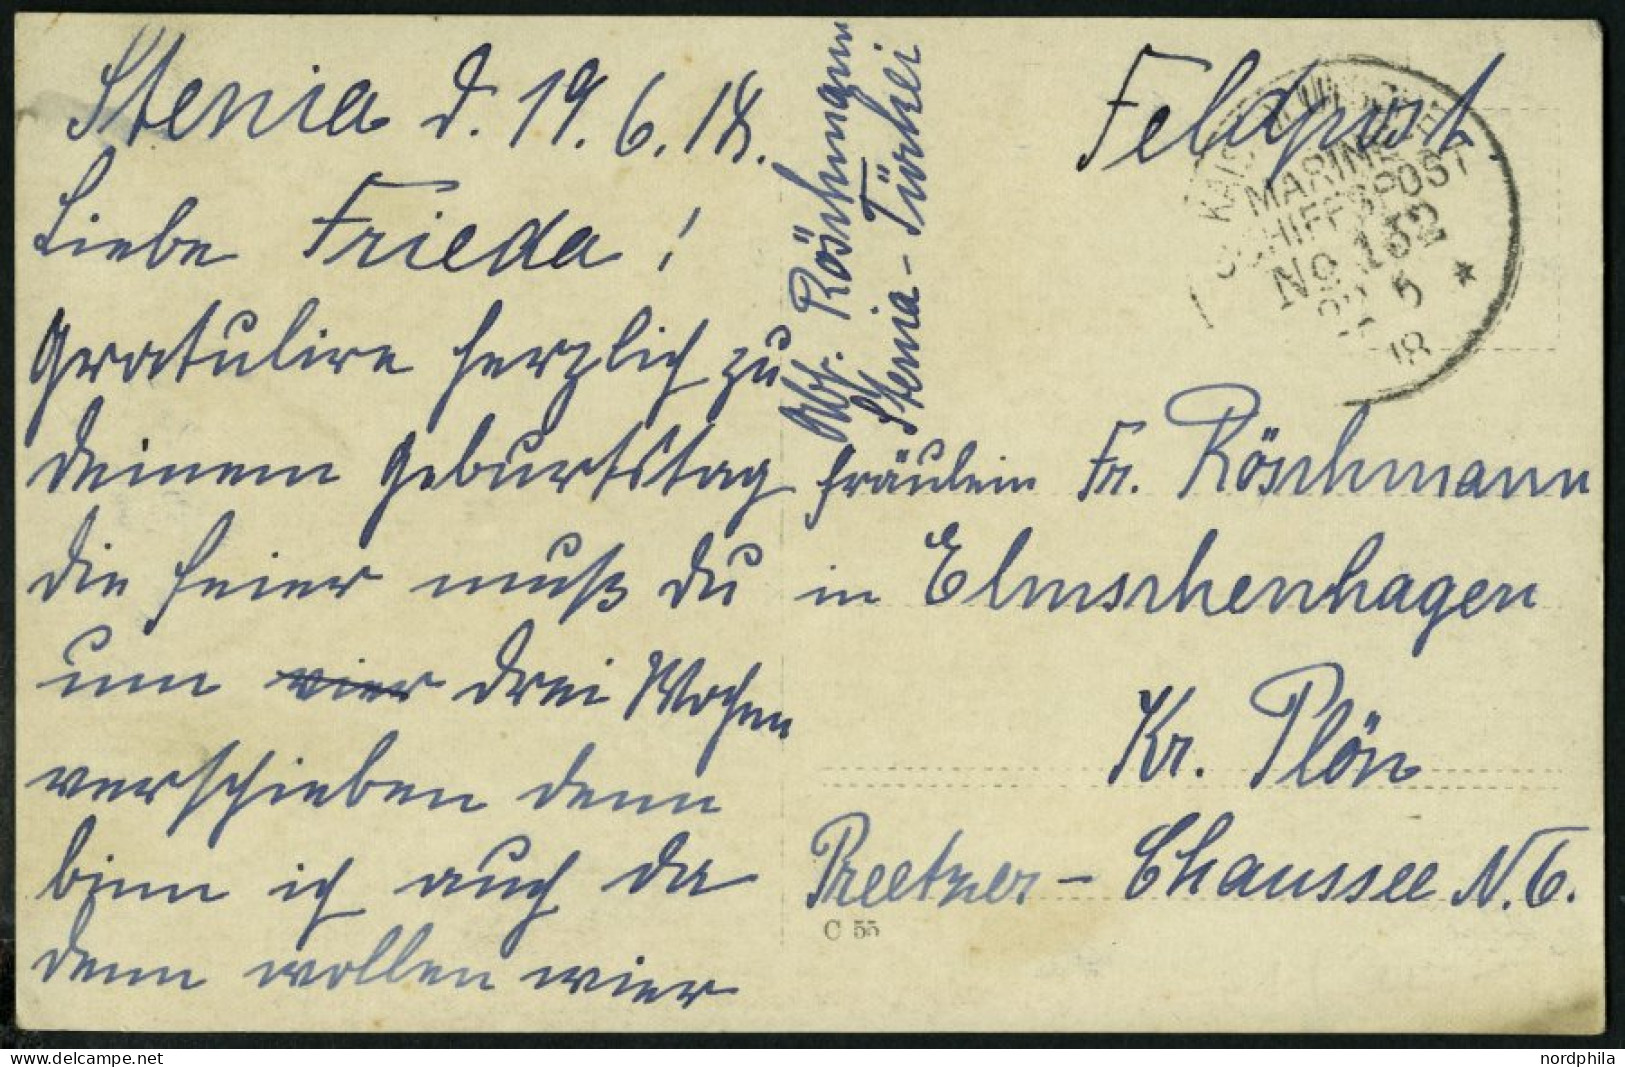 Stenia d. 19. 6. 18.
Liebe Frieda!
Gratulire herzlich zu
deinem Geburtstag
die Feier muß du
um vier drei Wochen
verschieben denn
binn ich auch da
denn wollen wier
Abs. Röschmann
Stenia - Türkei
Feldpost.
MARINE
SCHIFFSPOST
No 132
5
18
Fräulein Fr. Röschmann
in Elmschenhagen
Kr. Plön
Preetzer - Chaussee N. 6.
C 55
nordphila
delcampe.net